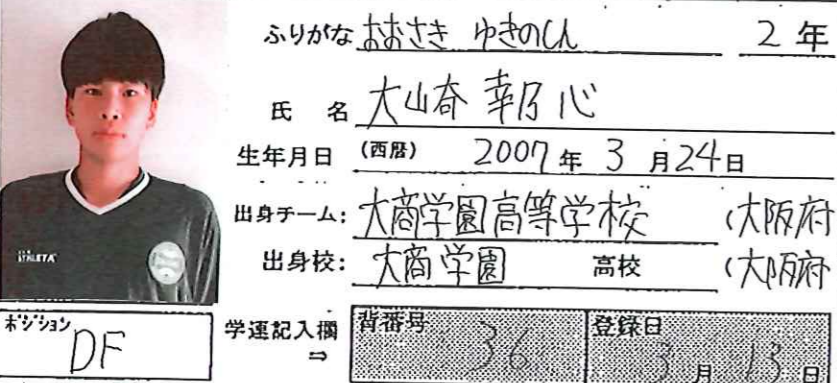 ふりがな おおさき ゆきのしん 2 年
氏 名 大崎 幸乃心
生年月日 (西暦) 2007 年 3 月 24 日
出身チーム: 大商学園高等学校 (大阪府
出身校: 大商学園 高校 (大阪府
ATHLETA
ポジション DF
学連記入欄 ⇒ 背番号 36 登録日 3 月 13 日